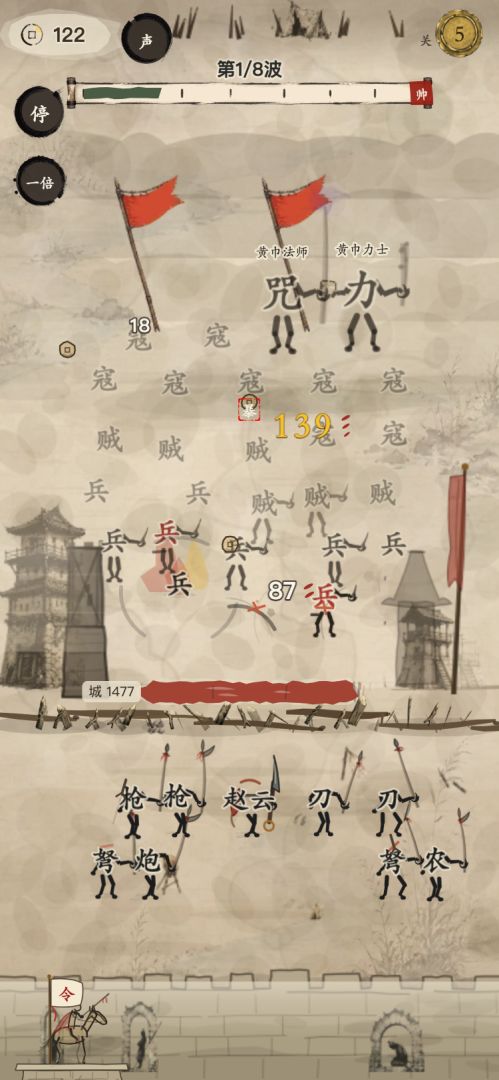 122
声
关
5
第1/8波
停
帅
一倍
黄巾法师
黄巾力士
咒
力
18
寇
寇
寇
寇
寇
寇
寇
139
寇
寇
贼
贼
贼
兵
兵
贼
贼
贼
兵
兵
兵
兵
兵
兵
87
兵
城 1477
枪
枪
赵云
刃
刀
弩
炮
弩
农
令